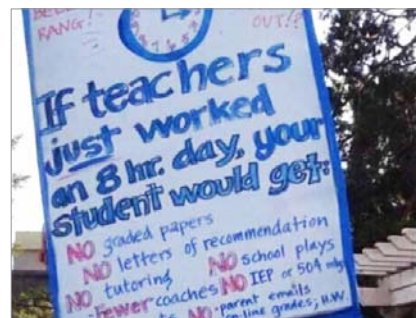 RANG! OUT!?
If teachers
just worked
an 8 hr. day, your
student would get:
NO graded papers
NO letters of recommendation
NO tutoring NO school plays
Fewer coaches NO IEP or 504 mtgs
NO parent emails
on-line grades, H.W.